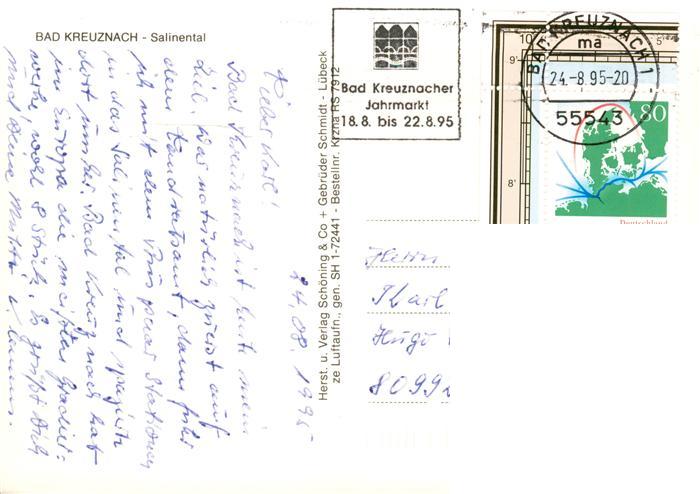 BAD KREUZNACH - Salinental
24.08.1995
Lieber Karl!
Bad Kreuznach ist heute mein
Ziel. War natürlich zuerst auf
dem Landratsamt, dann fuhr
ich mit dem Bus paar Stationen
in das Salinental und spazierte
dort umher. Bad Kreuznach hat
in Europa die meisten Gradier-
werke, wohl 8 Stück. Es grüßt Dich
und Deine Mutter
Herst. u. Verlag Schöning & Co + Gebrüder Schmidt - Lübeck
ze Luftaufn., gen. SH 1-72441 - Bestellnr. Krzna RS 7912
Bad Kreuznacher
Jahrmarkt
18.8. bis 22.8.95
BAD KREUZNACH 1
ma
24.-8.95-20
55543
10
9'
8'
80
Deutschland
Herrn
Karl
Hugo
8099